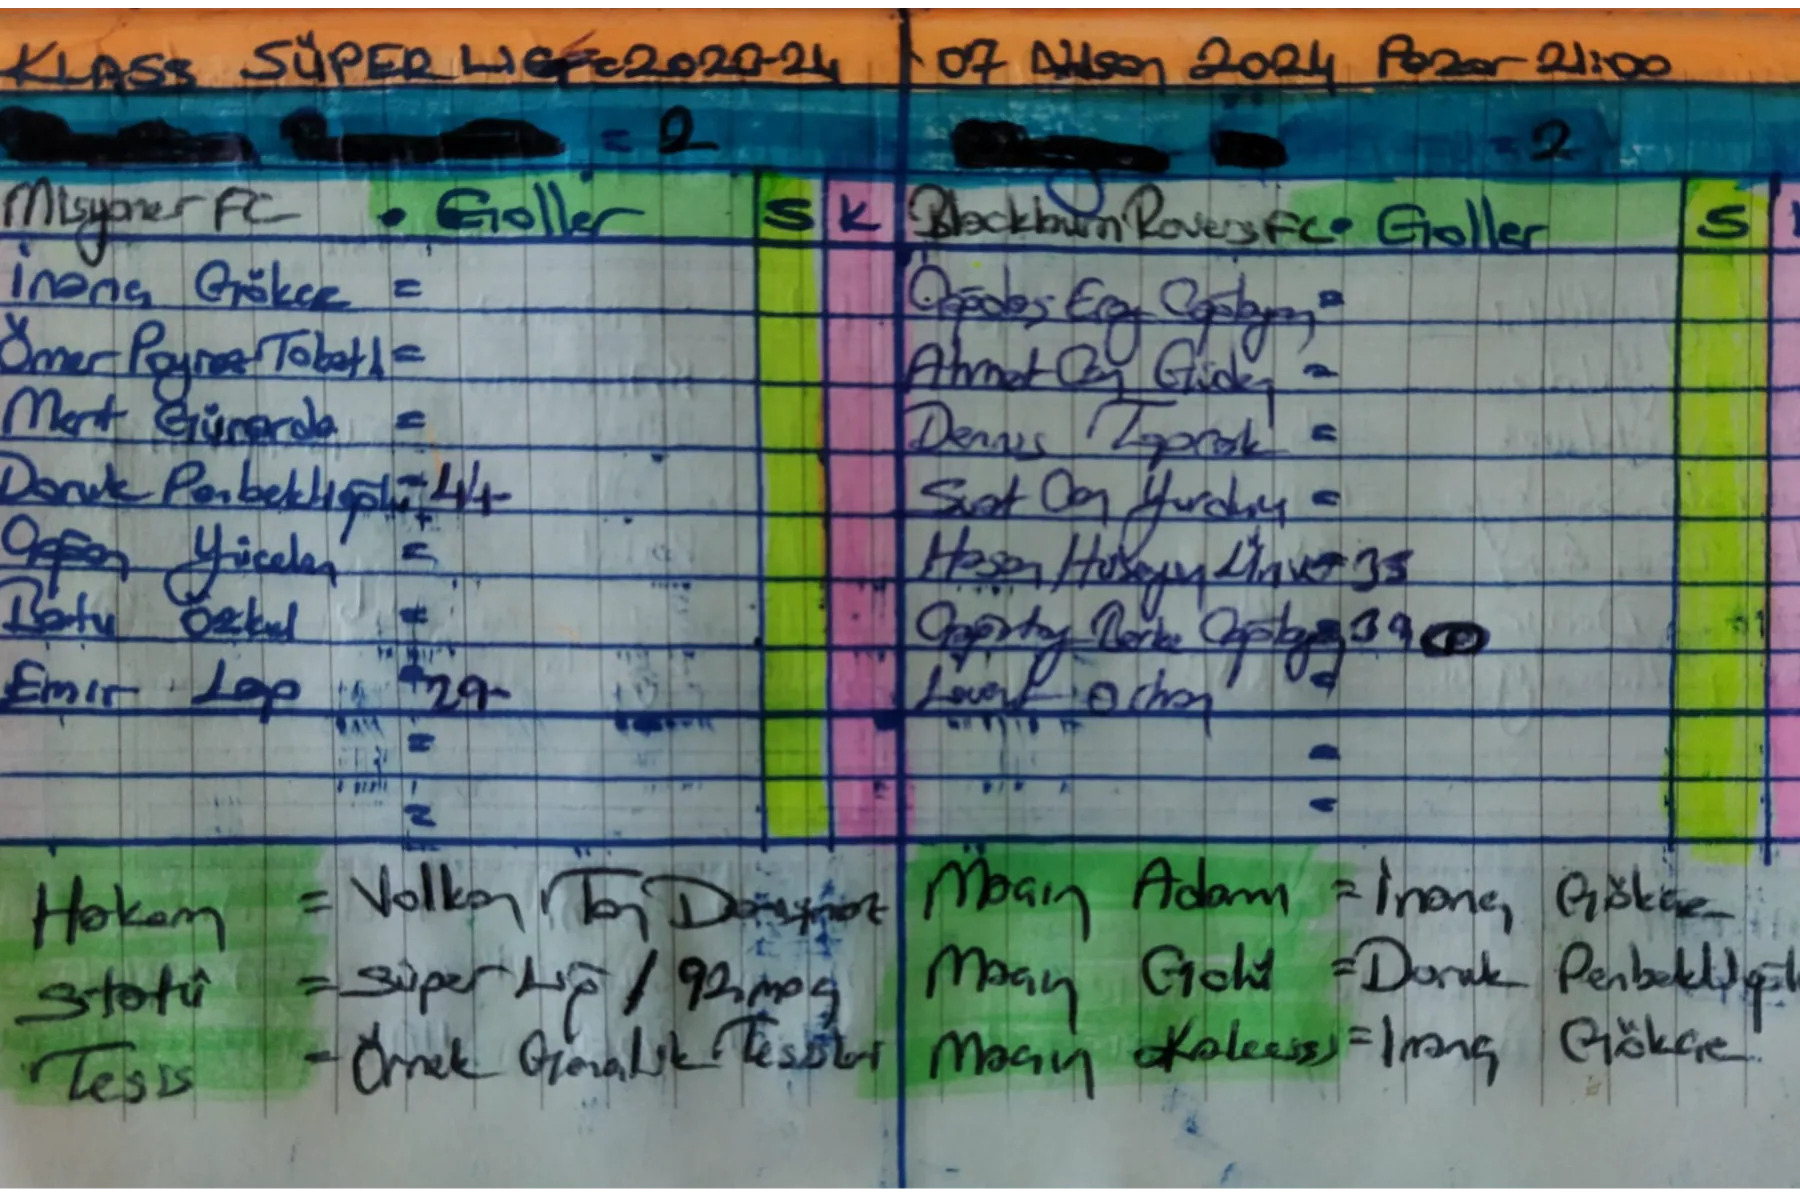 KLASS SÜPER LIG 2023-24
07 Nisan 2024 Pazar 21:00
= 2
= 2
Misyoner FC • Goller S K
Blackburn Rovers FC • Goller S
İnanç Gökçe =
Ömer Poyraz Tobatlı =
Mert Günarda =
Doruk Penbeklioğlu = 44-
Yücelen =
Batu Özkul =
Emir Lap = 29-
=
=
Çağdaş Eray Çağlayan =
Ahmet Can Güden =
Dennis Toprak =
Suat Can Yurduy =
Hasan Hüseyin Ünver = 35
Çağatay Berke Çağlayan = 39 P
Levent Orhan =
=
=
Hakem = Volkan Tan
Statü = Süper Lig / 92. maç
Tesis = Örnek Gençlik Tesisleri
Maçın Adamı = İnanç Gökçe
Maçın Golü = Doruk Penbeklioğlu
Maçın Kalecisi = İnanç Gökçe